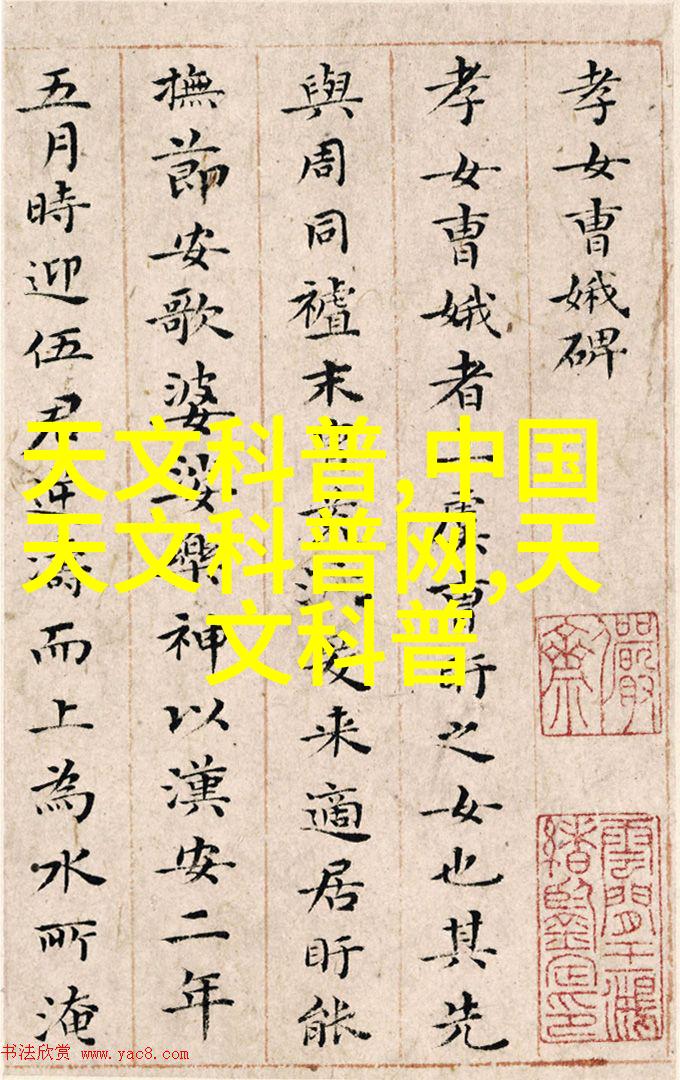 孝女曹娥碑
孝女曹娥者
之女也其先
與周同
末
来適居盱能
撫節安歌婆娑樂神以漢安二年
五月時迎伍君逆濤而上為水所淹
天文科普,中国
天文科普网,天
文科普
书法欣赏 www.yac8.com